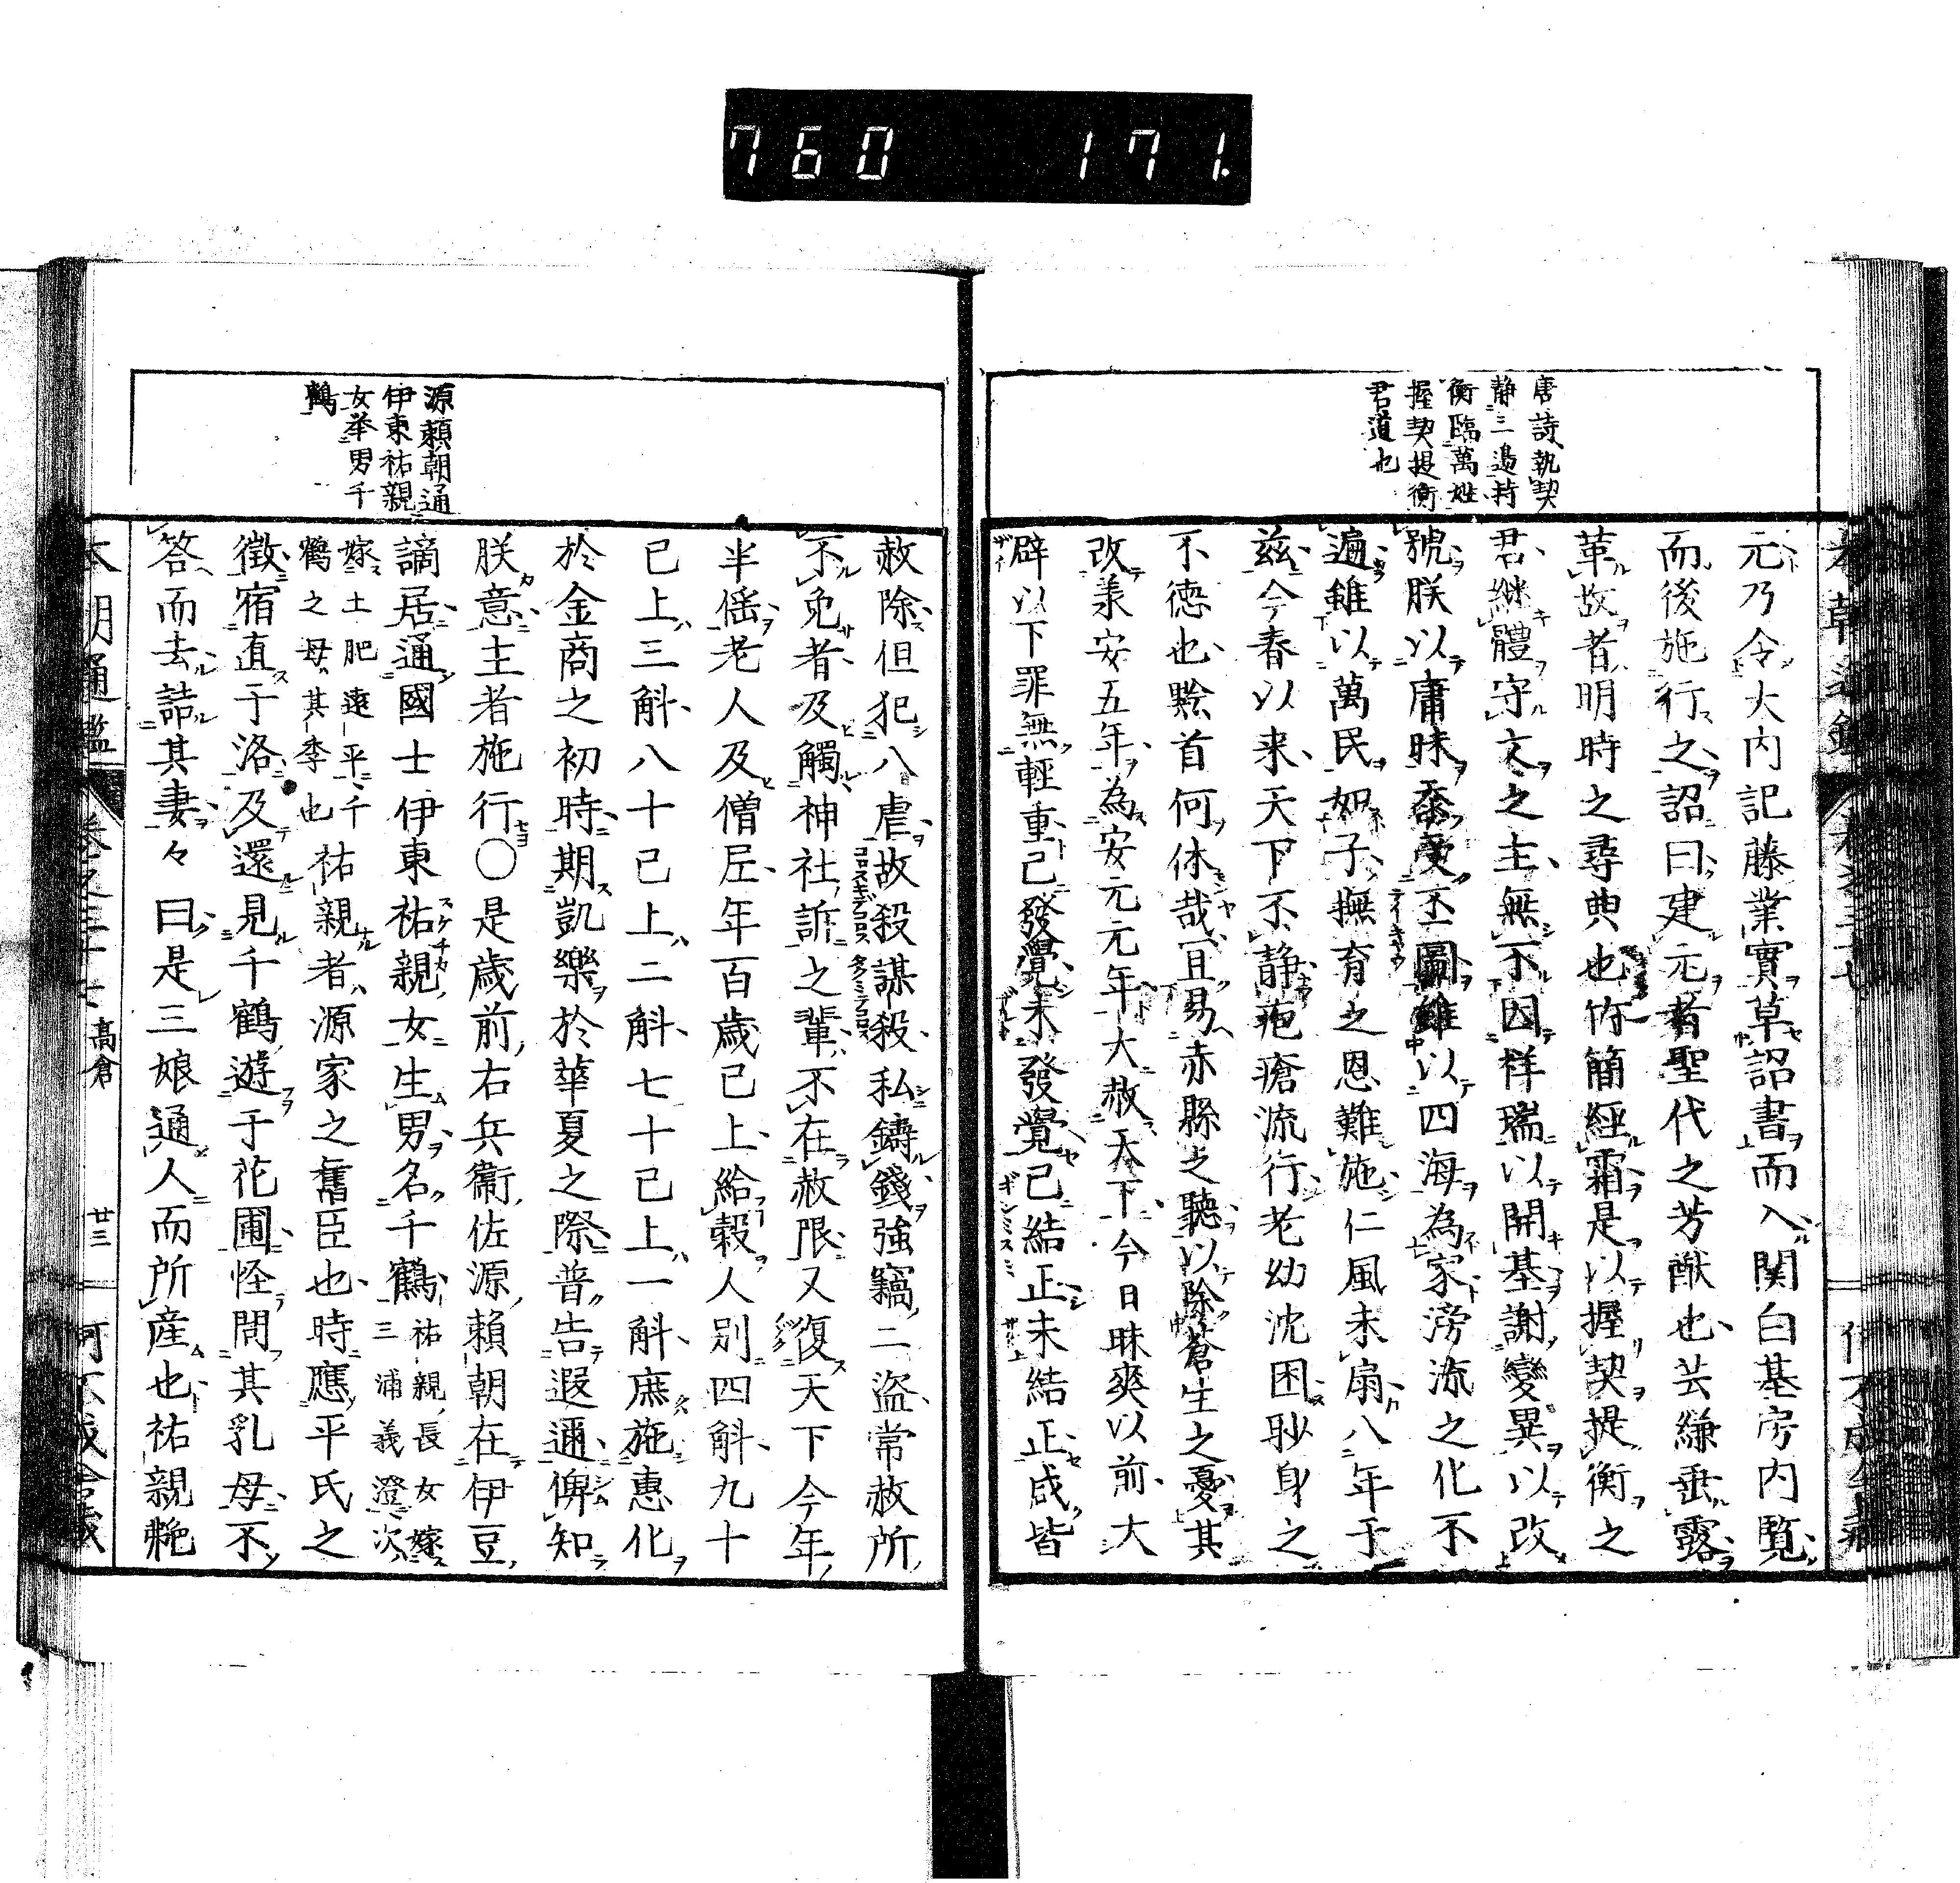 760 171.
唐詩執契
静三邉持
衡臨萬姓
握契提衡
君道也
元乃令大内記藤業實草詔書而入関白基房内覧
而後施行之詔曰建元者聖代之芳猷也芸縑垂露之
革故者明時之尋典也竹簡經霜是以握契提衡之
君継體守文之主無不因祥瑞以開基謝變異以改
號朕以庸昧忝慶丕圖雖以四海為家滂流之化不
遍雖以萬民如子撫育之恩難施仁風未扇八年于
茲今春以来天下不静疱瘡流行老幼沈困眇身之
不德也黔首何休哉且易赤縣之聽以除蒼生之憂其
改羕安五年為安元元年大赦天下今日昧爽以前大
辟以下罪無輕重已發覺未發覺已結正未結正咸皆
源頼朝通
伊東祐親
女挙男千
鶴
赦除但犯八虐故殺謀殺私鑄錢強竊二盗常赦所
不免者及觸神社訴之輩不在赦限又復天下今年
半徭老人及僧尼年百歳已上給穀人別四斛九十
已上三斛八十已上二斛七十已上一斛庶施惠化
於金商之初時期凱樂於華夏之際普告遐邇俾知
朕意主者施行〇是歳前右兵衞佐源頼朝在伊豆
謫居通國士伊東祐親女生男名千鶴祐親長女嫁三浦義澄次
嫁土肥遠平千鶴之母其季也祐親者源家之舊臣也時應平氏之
徴宿直于洛及還見千鶴遊于花圃怪問其乳母不
答而去詰其妻々曰是三娘通人而所産也祐親艴
本朝通鑑 高倉 廿三